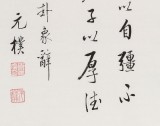 以自彊不
子以厚德
卦象辭
元樸